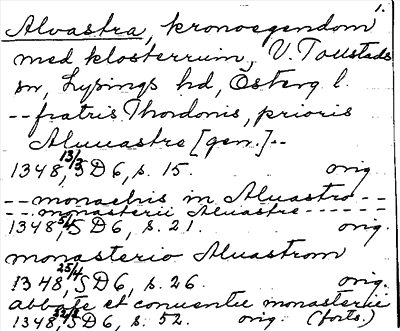 1.
Alvastra, kronoegendom
med klosterruin, V. Tollstads
sn, Lysings hd, Österg l.
--fratris Thordonis, prioris
Aluuastre [gen.]--
1348 13/3, SD 6, s. 15. orig.
--monachis in Aluastro--
--monasterii Aluastre-----
1348, SD 6, s. 21. orig.
monasterio Aluastrom
1348 25/4, SD 6, s. 26. orig.
abbate et conuentu monasterii
1348, SD 6, s. 52. orig. (forts.)